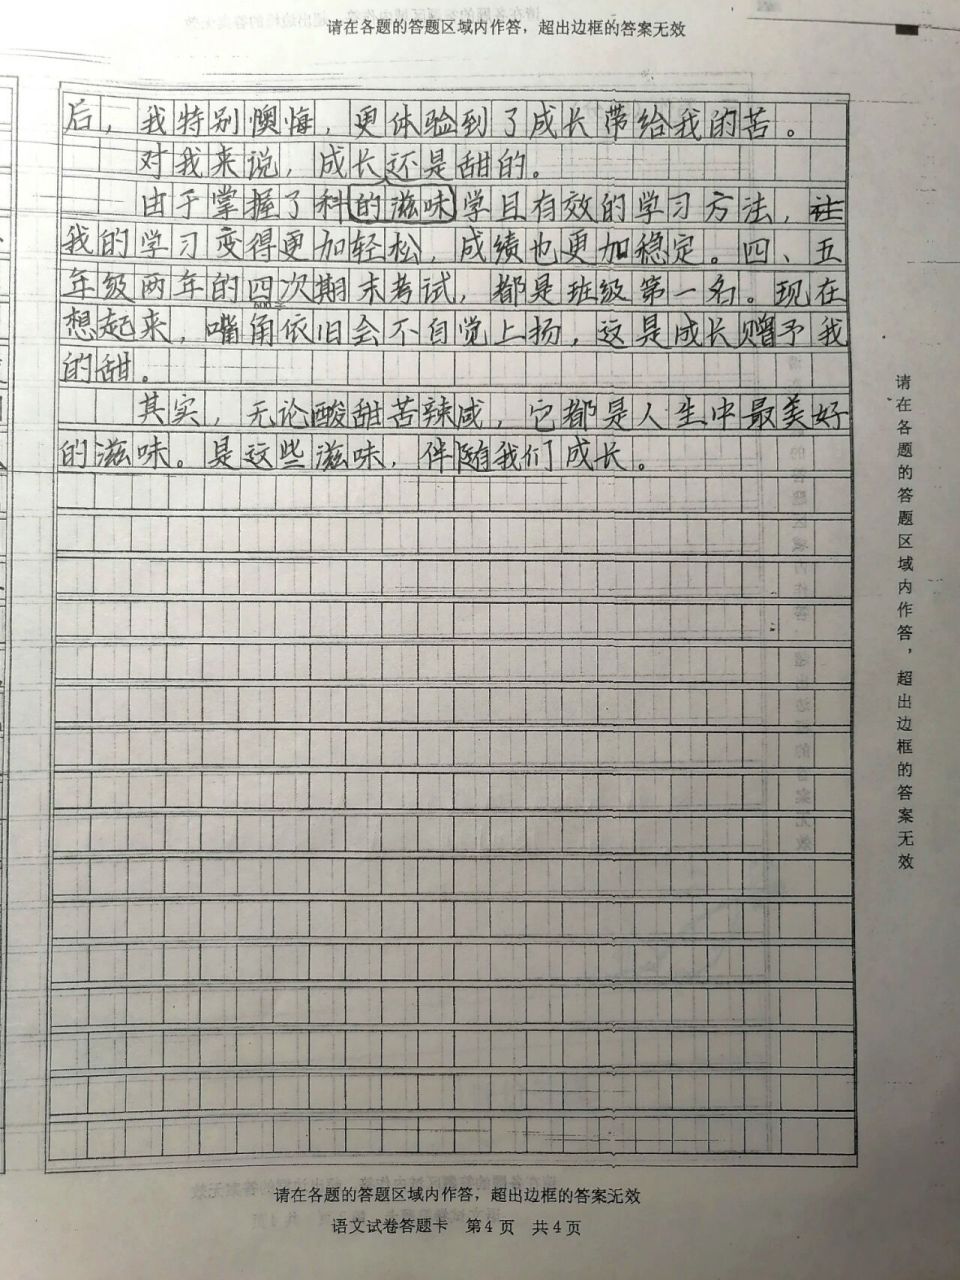 请在各题的答题区域内作答，超出边框的答案无效
后，我特别懊悔，更体验到了成长带给我的苦。
对我来说，成长还是甜的。
由于掌握了科的滋味学且有效的学习方法，让
我的学习变得更加轻松，成绩也更加稳定。四、五
年级两年的四次期末考试，都是班级第一名。现在
想起来，嘴角依旧会不自觉上扬，这是成长赠予我
的甜。
其实，无论酸甜苦辣咸，它都是人生中最美好
的滋味。是这些滋味，伴随我们成长。
请在各题的答题区域内作答，超出边框的答案无效
请在各题的答题区域内作答，超出边框的答案无效
语文试卷答题卡 第4页 共4页